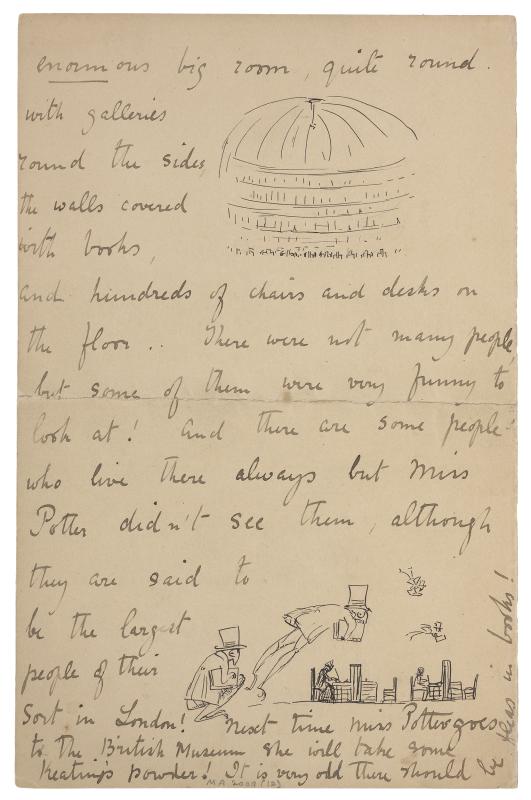 enormous big room, quite round.
with galleries
round the sides,
the walls covered
with books,
and hundreds of chairs and desks on
the floor .. There were not many people,
but some of them were very funny to
look at! And there are some people
who live there always but Miss
Potter didn't see them, although
they are said to
be the largest
people of their
Sort in London! Next time Miss Potter goes
to the British Museum she will take some
Keating's powder! It is very odd there should be
fleas in books!
MA 2009 (12)